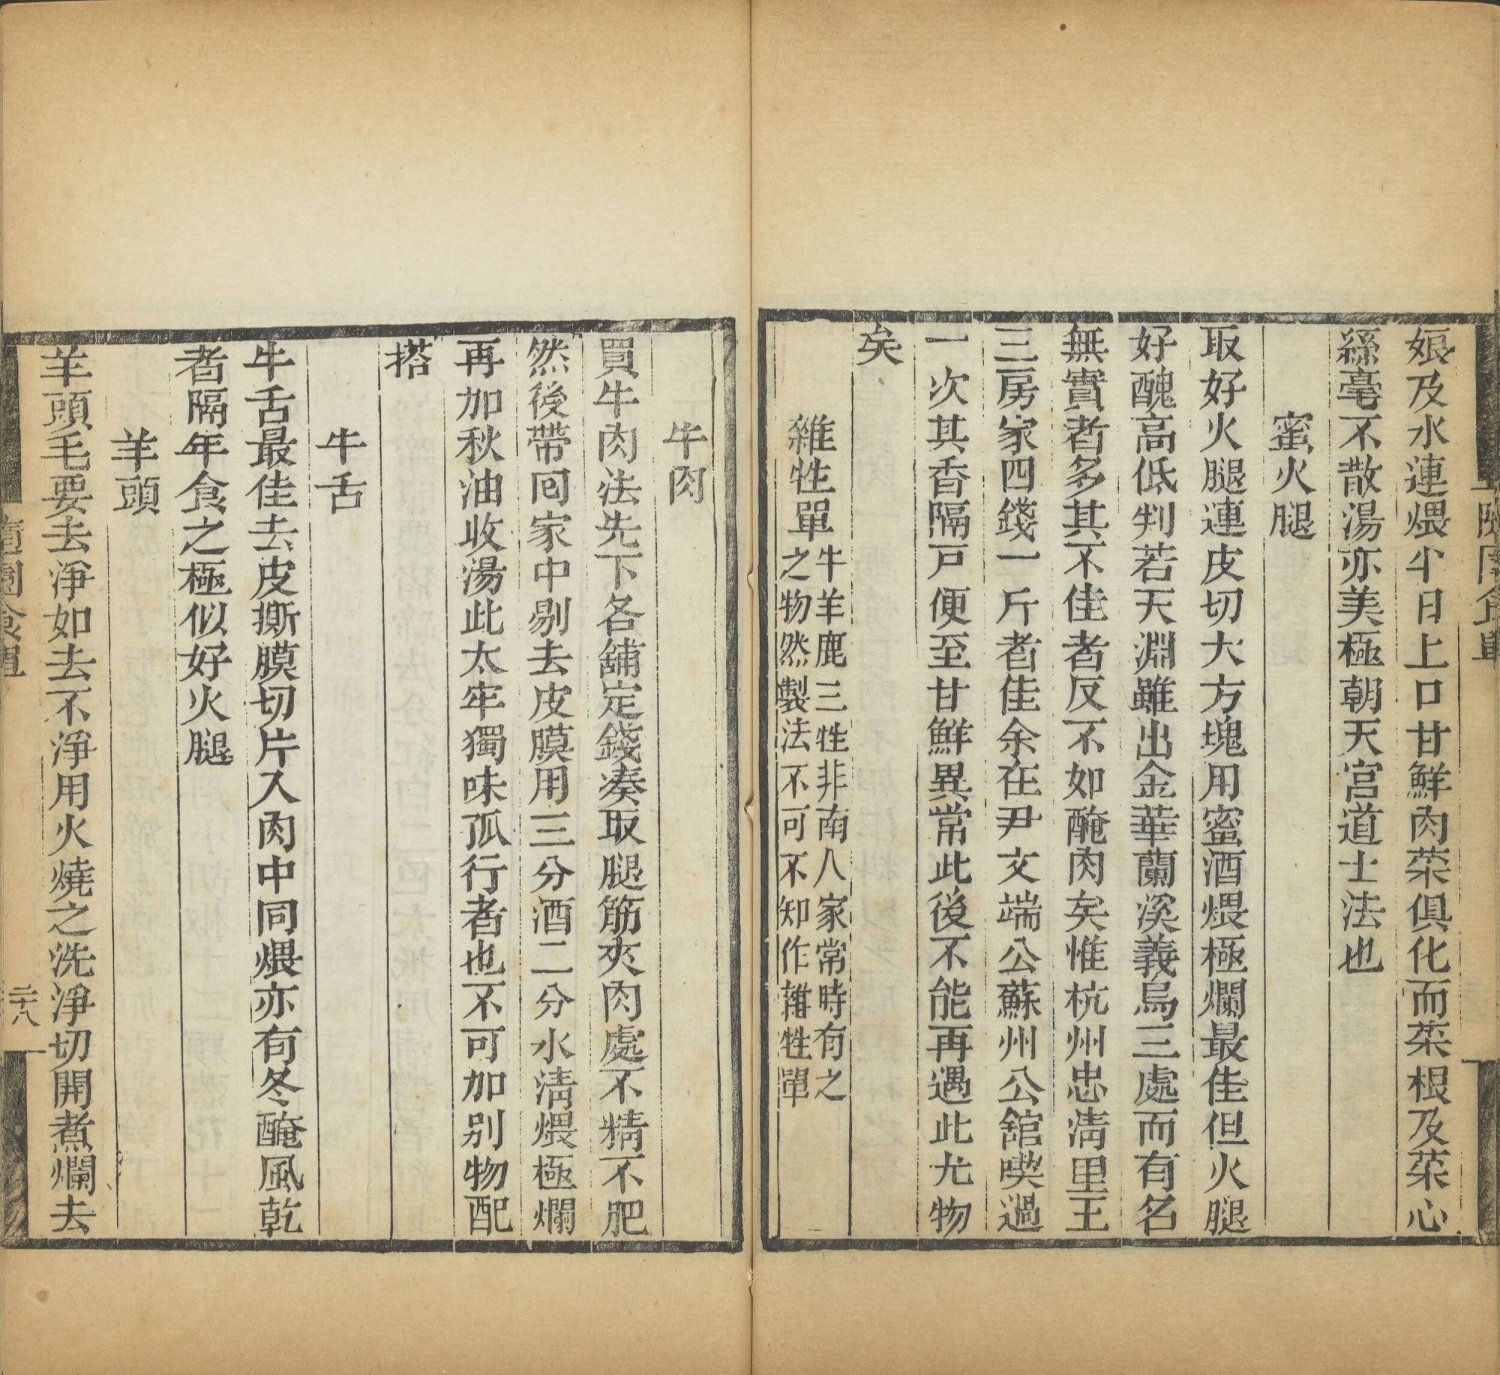 隨園食單
娘及水連煨半日上口甘鮮肉菜俱化而菜根及菜心
絲毫不散湯亦美極朝天宮道士法也
蜜火腿
取好火腿連皮切大方塊用蜜酒煨極爛最佳但火腿
好醜高低判若天淵雖出金華蘭溪義烏三處而有名
無實者多其不佳者反不如醃肉矣惟杭州忠淸里王
三房家四錢一斤者佳余在尹文端公蘇州公舘喫過
一次其香隔戸便至甘鮮異常此後不能再遇此尤物
矣
雜牲單牛羊鹿三牲非南人家常時有之
之物然製法不可不知作雜牲單
牛肉
買牛肉法先下各舖定錢凑取腿筋夾肉處不精不肥
然後帶回家中剔去皮膜用三分酒二分水淸煨極爛
再加秋油收湯此太牢獨味孤行者也不可加别物配
搭
牛舌
牛舌最佳去皮撕膜切片入肉中同煨亦有冬醃風乾
者隔年食之極似好火腿
羊頭
羊頭毛要去淨如去不淨用火燒之洗淨切開煮爛去
隨園食單
二十八